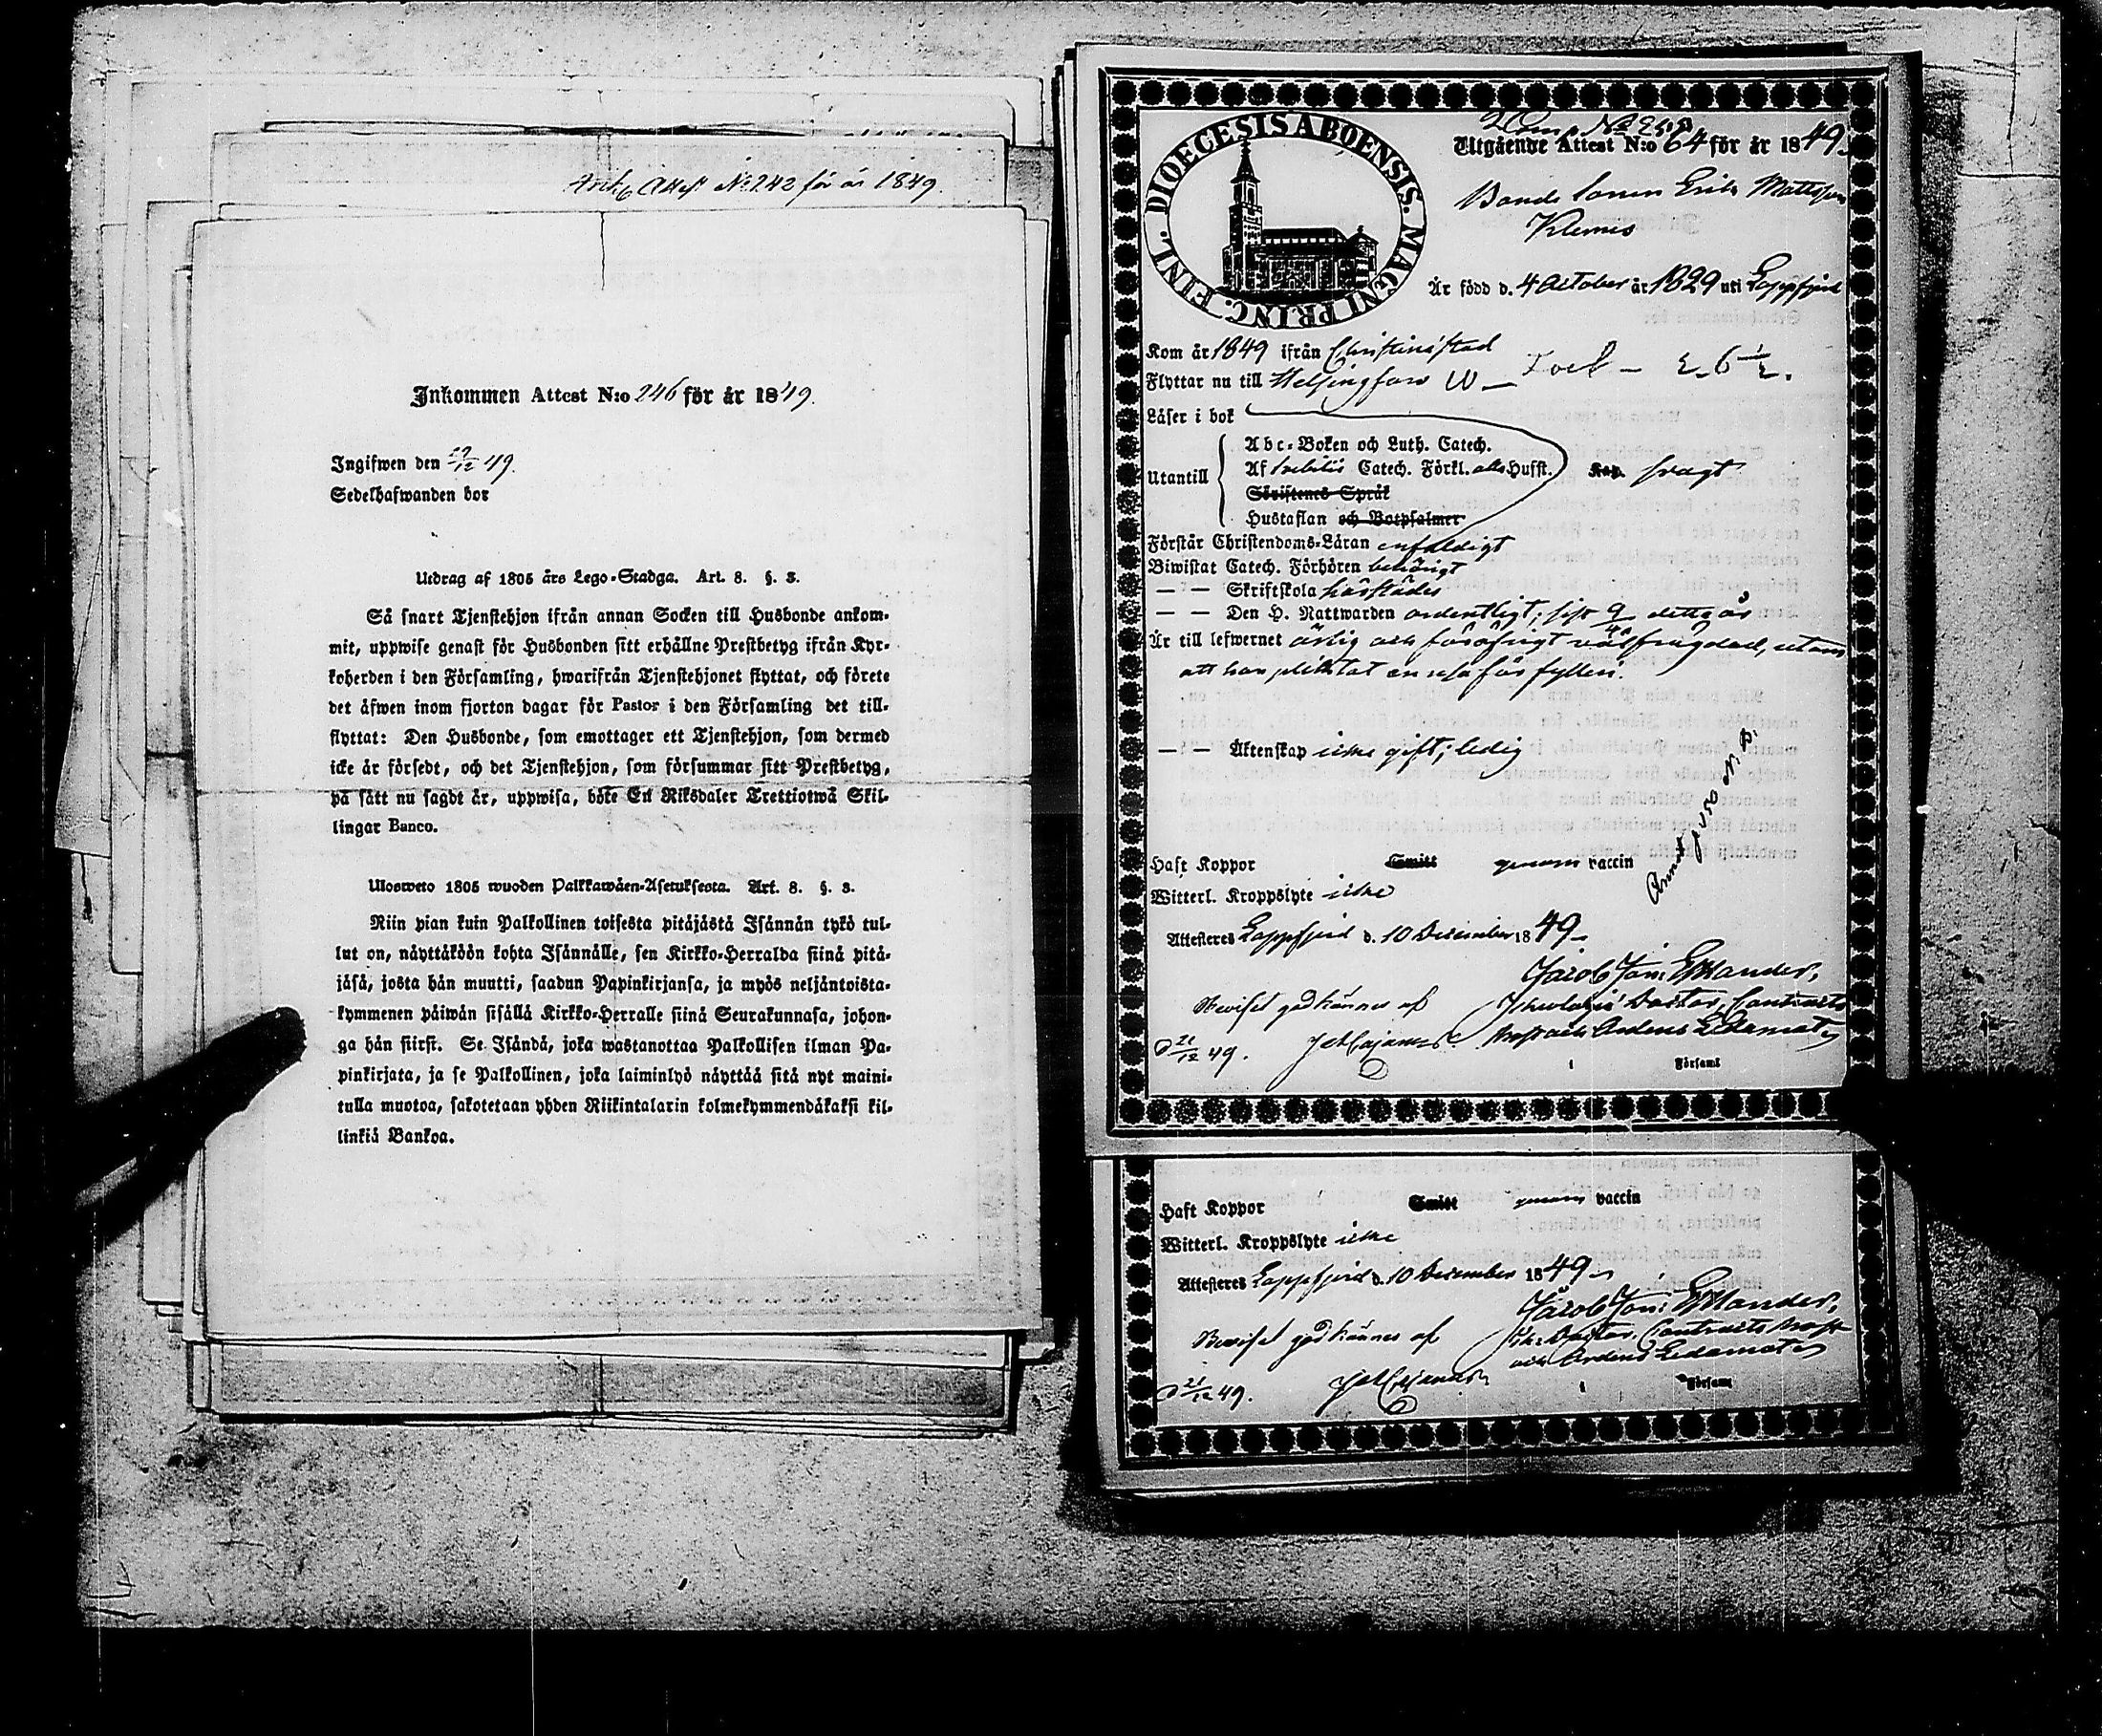 Attest No 242 för år 1849.
Inkommen Attest N:o 246 för år 1849.
Ingifwen den 29/12 49.
Sedelhafwanden bor
Utdrag af 1805 års Lego-Stadga. Art. 8. §. 3.
Så snart Tjenstehjon ifrån annan Socken till Husbonde ankom-
mit, uppwise genast för Husbonden sitt erhållne Prestbetyg ifrån Kyr-
koherden i den Församling, hwarifrån Tjenstehjonet flyttat, och förete
det äfwen inom fjorton dagar för Pastor i den Församling det till-
flyttat: Den Husbonde, som emottager ett Tjenstehjon, som dermed
icke är försedt, och det Tjenstehjon, som försummar sitt Prestbetyg,
på sätt nu sagdt är, uppwisa, böte En Riksdaler Trettiotwå Skil-
lingar Banco.
Ulosweto 1805 wuoden Palkkawäen-Asetuksesta. Art. 8. §. 3.
Niin pian kuin Palkollinen toisesta pitäjästä Isännän tykö tul-
lut on, näyttäköön kohta Isännälle, sen Kirkko-Herralda siinä pitä-
jäsä, josta hän muutti, saadun Papinkirjansa, ja myös neljäntoista-
kymmenen päiwän sisällä Kirkko-Herralle siinä Seurakunnasa, johon-
ga hän siirst. Se Isändä, joka wastanottaa Palkollisen ilman Pa-
pinkirjata, ja se Palkollinen, joka laiminlyö näyttää sitä nyt maini-
tulla muotoa, sakotetaan yhden Riikintalarin kolmekymmendäkaksi kil-
linkiä Bankoa.
DIOECESIS ABOENSIS. MAGNI PRINC. FINL.
Utgående Attest N:o 64 för år 1849.
Bonde Sonen Erik Mattsson
Klemes
Är född d. 4 October år 1829 uti Lappfjerd
Kom år 1849 ifrån Christinæstad
Flyttar nu till Helsingfors
Läser i bok
Utantill
Abc-Boken och Luth. Catech.
Af Svebilii Catech. Förkl. Husst. Kap. svagt
Skriftenes Språk
Hustaflan och Botpsalmer
Förstår Christendoms-Läran enfaldigt
Biwistat Catech. Förhören behörigt
— — Skriftskola härstädes
— — Den H. Nattwarden ordentligt; sist 9/ detta år
Är till lefwernet ärlig och föröfrigt välfrägdad, utom
att han pliktat en resa för fylleri.
— — Äktenskap icke gift; ledig
Haft Koppor Smitt genom vaccin
Witterl. Kroppslyte icke
Attesteras Lappfjerd d. 10 December 1849
Jacob Joh: Estlander,
Theologiæ Doctor, Contracts
Prost och Ordens Ledamot
Beviset godkännes af
d 21/12 49.
Församl
Haft Koppor Smitt genom vaccin
Witterl. Kroppslyte icke
Attesteras Lappfjerd d. 10 December 1849
Jacob Joh: Estlander,
Th: Doctor, Contracts Prost
och Ordens Ledamot
Beviset godkännes af
d 21/12 49.
Församl